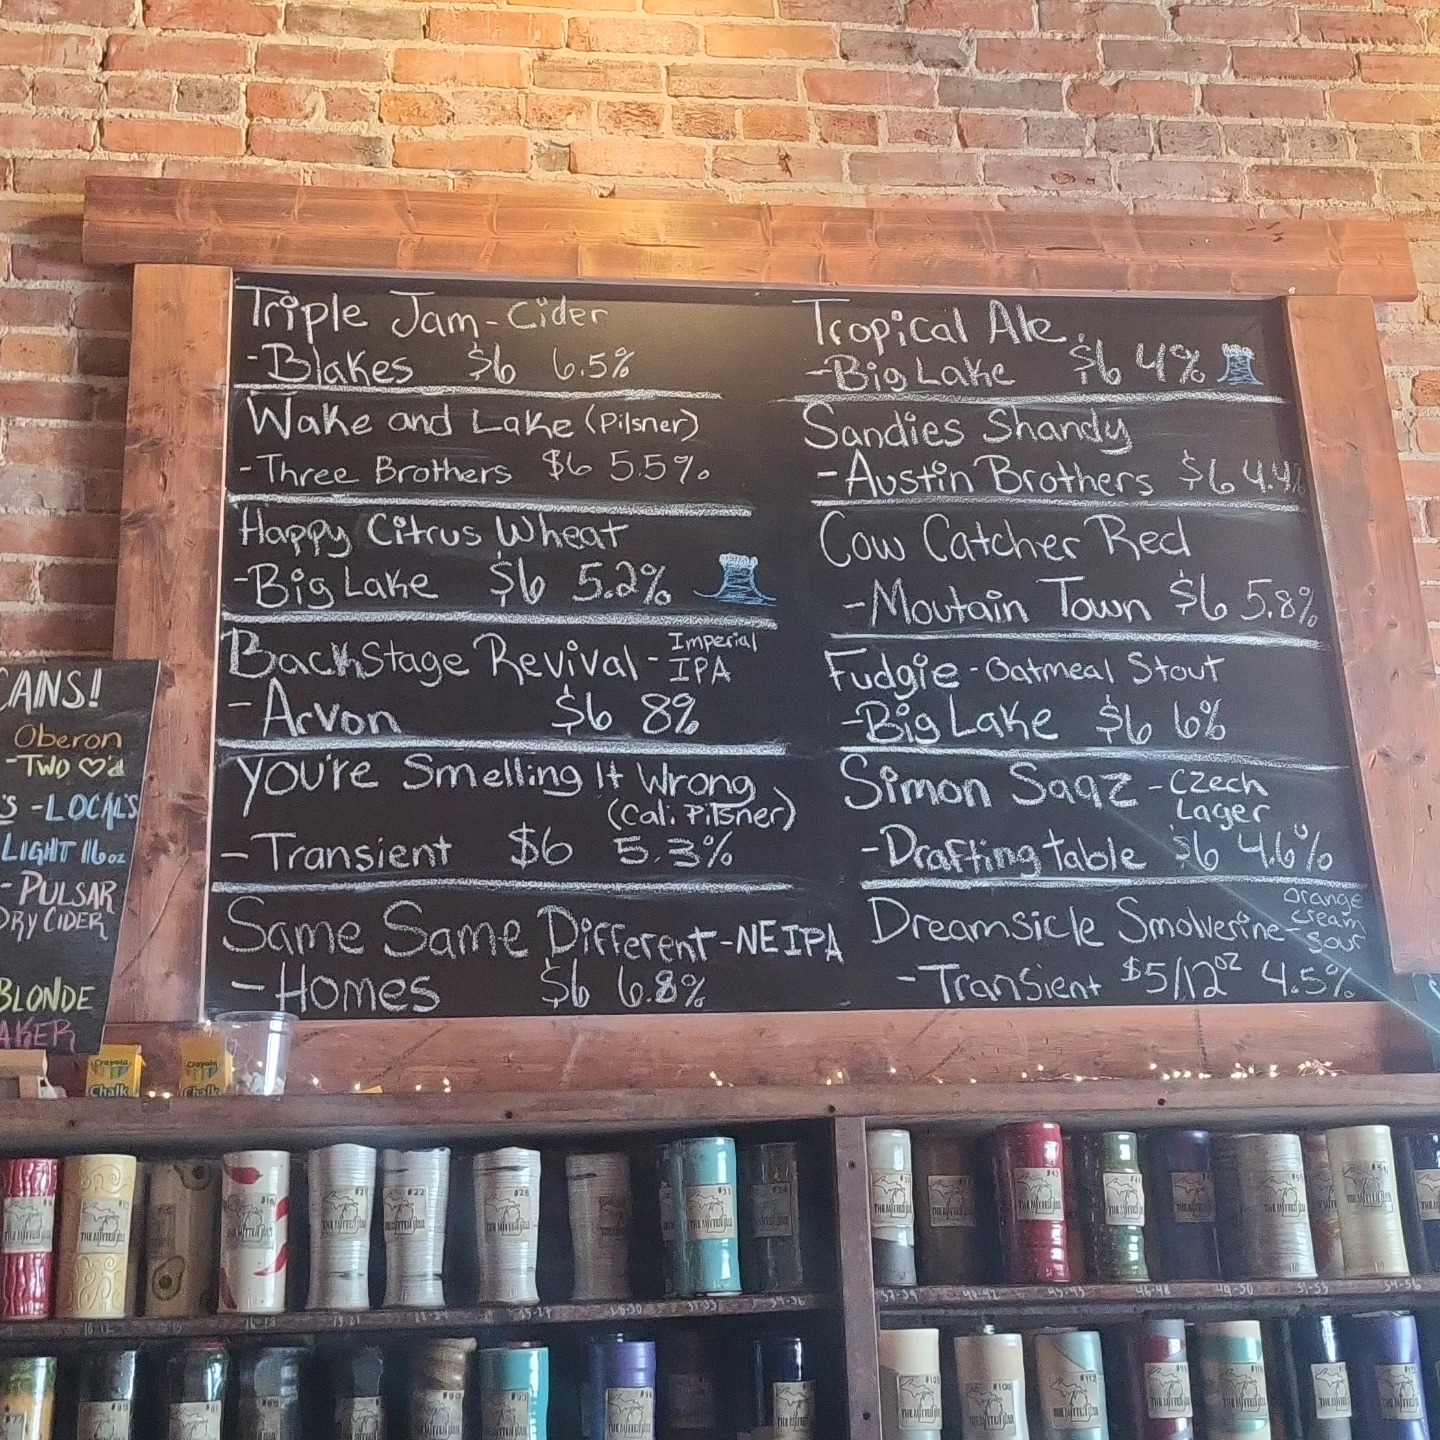 Triple Jam - Cider
- Blakes $6 6.5%
Wake and Lake (Pilsner)
- Three Brothers $6 5.5%
Happy Citrus Wheat
- Big Lake $6 5.2%
Backstage Revival - Imperial
IPA
- Arvon $6 8%
You're Smelling It Wrong
(Cal. Pilsner)
- Transient $6 5.3%
Same Same Different - NEIPA
- Homes $6 6.8%
Tropical Ale
- Big Lake $6 4%
Sandies Shandy
- Austin Brothers $6 4.4%
Cow Catcher Red
- Moutain Town $6 5.8%
Fudgie - Oatmeal Stout
- Big Lake $6 6%
Simon Saaz - Czech
Lager
- Drafting table $6 4.6%
Dreamsicle Smolverine - Orange
Cream
Sour
- Transient $5/12oz 4.5%
CANS!
Oberon
- TWO ♡'d
'S - LOCAL'S
LIGHT 16oz
- PULSAR
DRY CIDER
BLONDE
AKER
Crayola
Chalk
Crayola
Chalk
THE MITTEN BAR